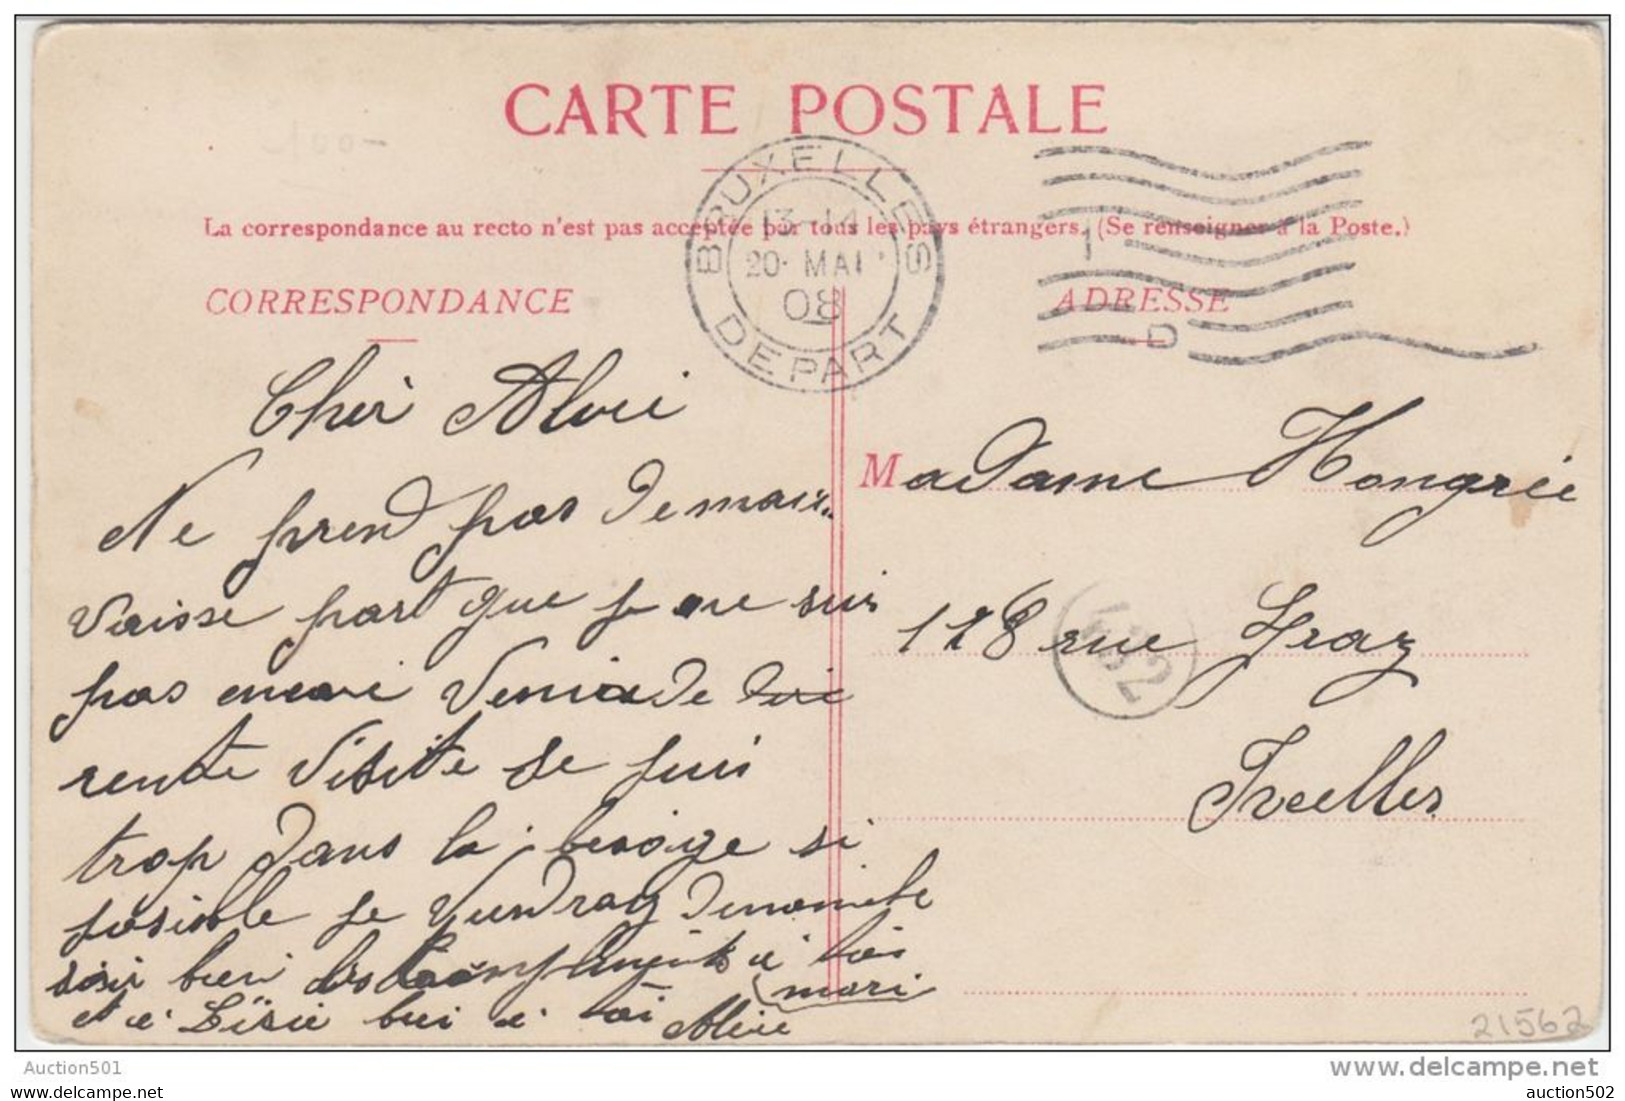 CARTE POSTALE
La correspondance au recto n'est pas acceptée par tous les pays étrangers. (Se renseigner à la Poste.)
BRUXELLES
13-14
20 MAI
08
DEPART
1
D
CORRESPONDANCE
Cher
Ne prend pas de mau
vaisse part que je ne suis
pas encore venu de
rente visite je suis
trop dans la besoige si
posible je viendray
bien compliments a
mari
et a bei a toi
ADRESSE
Madame Hongrée
128 rue Graz
Ixelles
21562
Auction501
www.delcampe.net
auction502